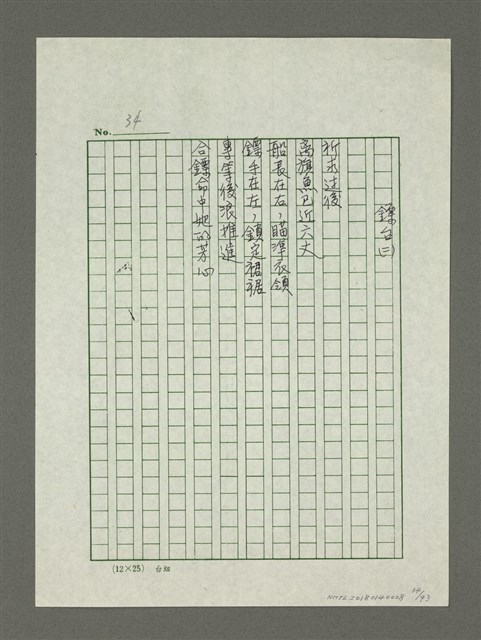 No. 34
鏢台(二)
祈求过後
高旗魚已近六丈
船長在右，瞄準衣領
鏢手在左，鎖定裙裾
專等後浪推進
合鏢命中她的芳心
(12×25) 台細
NMTL20180140008
34/43